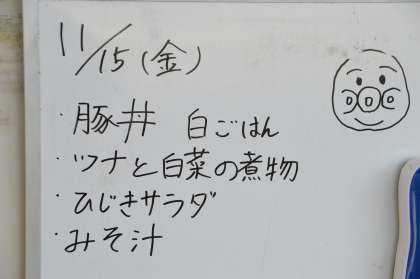 11/15(金)
・豚丼 白ごはん
・ツナと白菜の煮物
・ひじきサラダ
・みそ汁